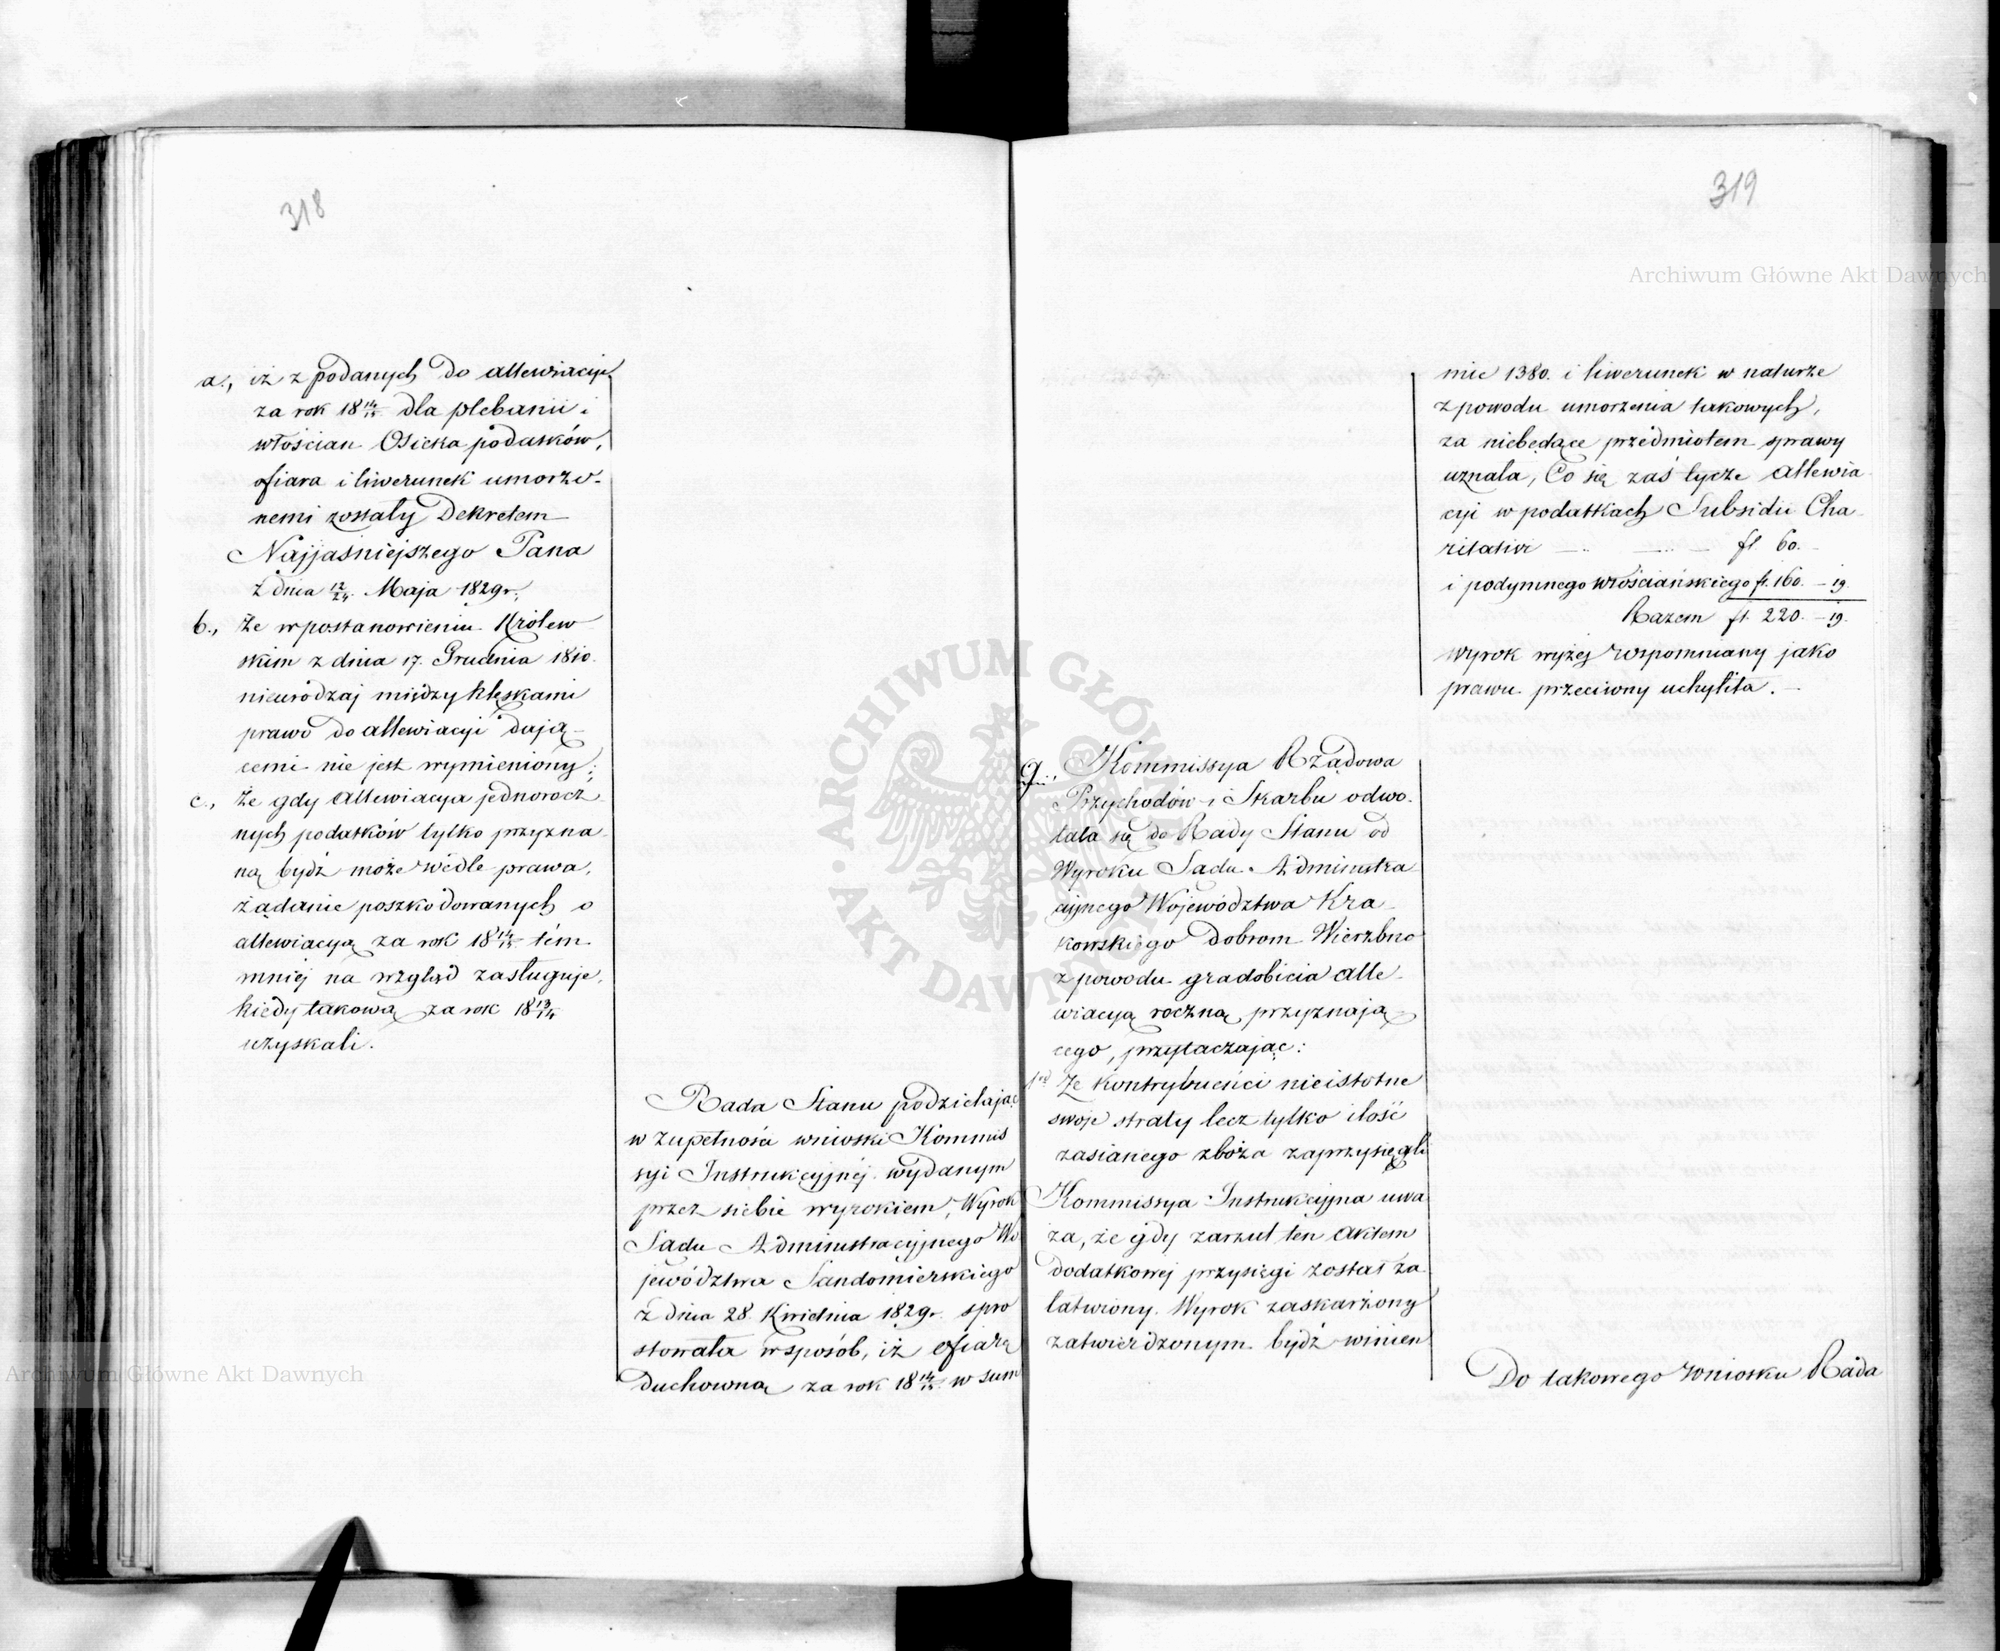 318
a., iż z podanych do allewiacyi
za rok 18 14/15 dla plebanii i
włościan Osieka podatków,
ofiara i liwerunek umorzo-
nemi zostały Dekretem
Najjaśniejszego Pana
z dnia 12/24 Maja 1829 r.;
b., Że w postanowieniu Królew
skim z dnia 17. Grudnia 1810.
nieurodzaj między klęskami
prawo do allewiacyi dają-
cemi nie jest wymieniony;
c., Że gdy allewiacya jednorocz
nych podatków tylko przyzna
ną bydź może wedle prawa,
żądanie poszkodowanych o
allewiacyą za rok 18 14/15 tém
mniéj na wzgląd zasługuje,
kiedy takową za rok 18 13/14
uzyskali.
Rada Stanu podzielając
w zupełności wnioski Kommis
syi Instrukcyjnéj wydanym
przez siebie wyrokiem, Wyrok
Sadu Administracyjnego Wo
jewództwa Sandomierskiego
z dnia 28 Kwietnia 1829 r. spro
stowała w sposób, iż ofiarę
duchowną za rok 18 14/15 w sum
319
mie 1380. i liwerunek w naturze
z powodu umorzenia takowych,
za niebędące przedmiotem sprawy
uznała, Co się zaś tycze allewia
cyi w podatkach Subsidii Cha
ritativi — — fl. 60. -
i podymnego włościańskiego fl. 160. - 19.
Razem fl. 220. - 19.
wyrok wyżej wspomniany jako
prawu przeciwny uchyliła. -
9., Kommissya Rządowa
Przychodów i Skarbu odwo-
łała się do Rady Stanu od
Wyroku Sadu Administra
cyjnego Województwa Kra-
kowskiego dobrom Wierzbno
z powodu gradobicia alle-
wiacyą roczną przyznają-
cego, przytaczając:
1od Że kontrybuenci nieistotne
swoje straty lecz tylko ilość
zasianego zboża zaprzysięgli
Kommissya Instrukcyjna uwa
ża, że gdy zarzut ten aktem
dodatkowej przysięgi został za
łatwiony. Wyrok zaskarżony
zatwierdzonym bydź winien
Do takowego wniosku Rada
Archiwum Główne Akt Dawnych
Archiwum Główne Akt Dawnych
ARCHIWUM GŁÓWNE AKT DAWNYCH